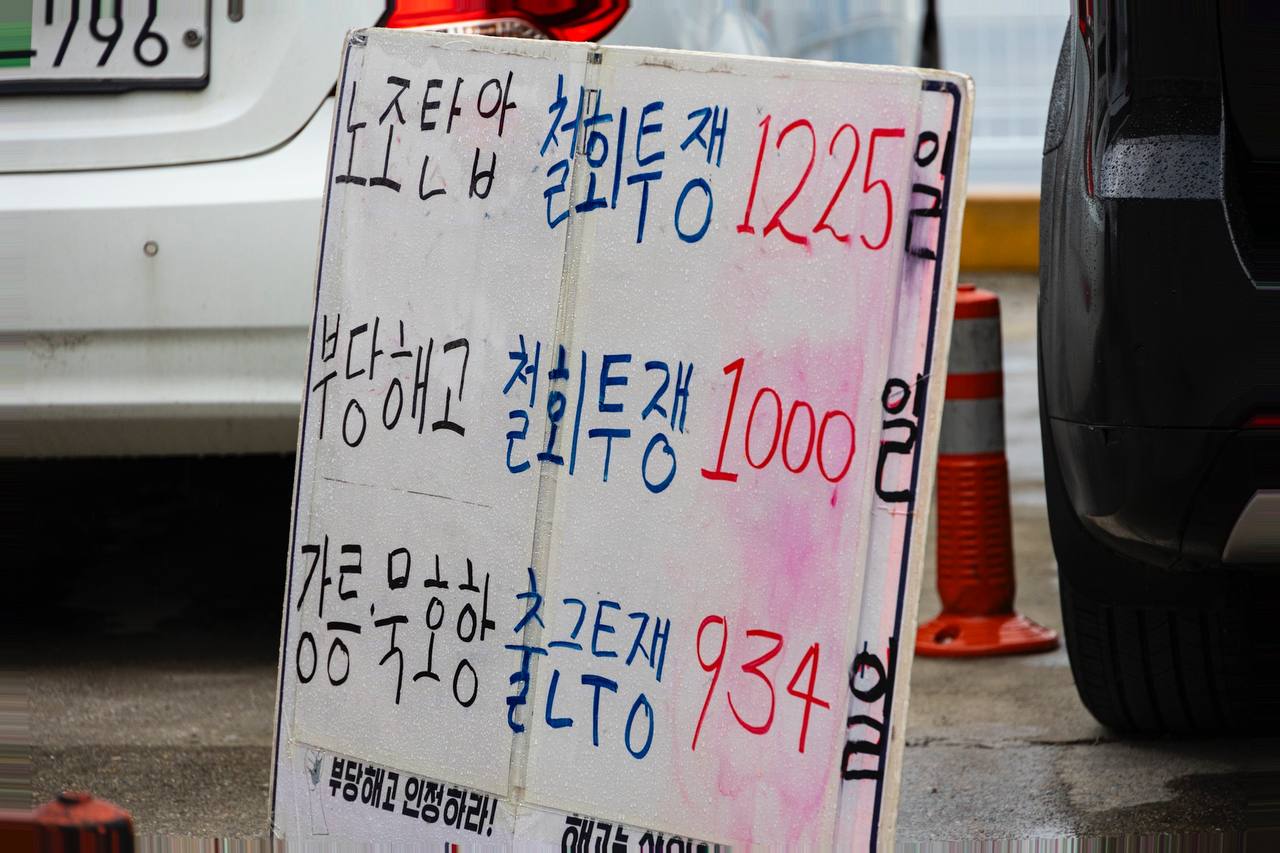 796
노조탄압 철회투쟁 1225일
부당해고 철회투쟁 1000일
강릉.묵호항 출근투쟁 934일
부당해고 인정하라!
해고는